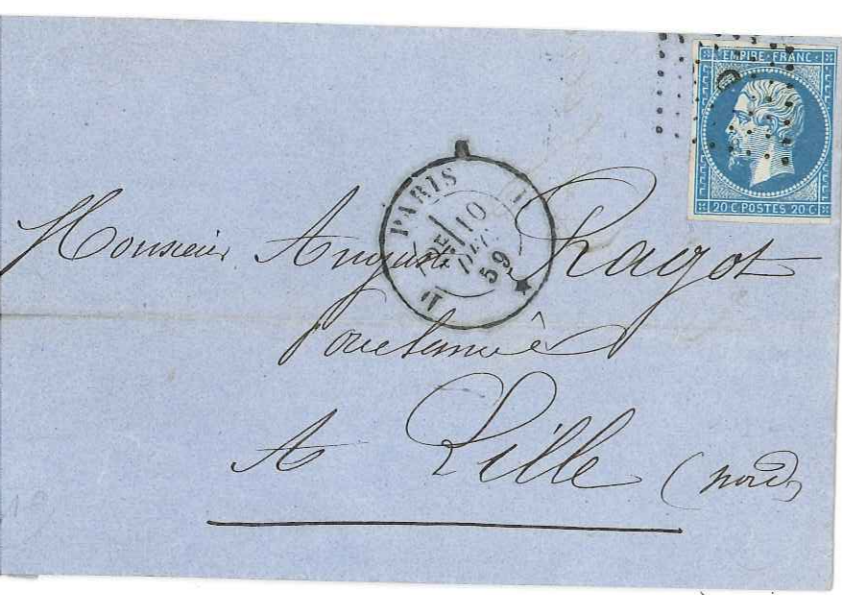 EMPIRE FRANC
20 C POSTES 20 C
PARIS
10
DEC
59
Monsieur Auguste Ragot
A Lille (nord)